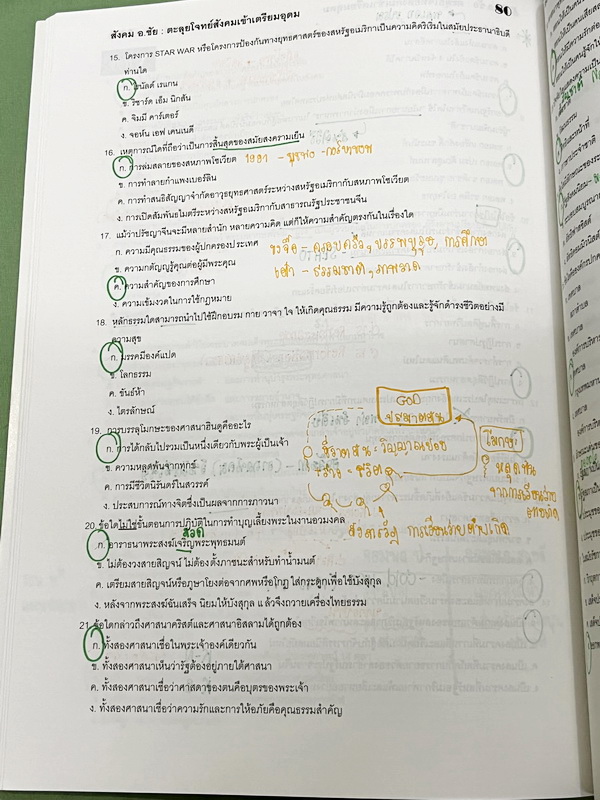 สังคม อ.ชัย : ตะลุยโจทย์สังคมเข้าเตรียมอุดม
80
15. โครงการ STAR WAR หรือโครงการป้องกันทางยุทธศาสตร์ของสหรัฐอเมริกาเป็นความคิดริเริ่มในสมัยประธานาธิบดี
ท่านใด
ก. โรนัลด์ เรแกน
ข. ริชาร์ด เอ็ม นิกสัน
ค. จิมมี คาร์เตอร์
ง. จอห์น เอฟ เคนเนดี
16. เหตุการณ์ใดที่ถือว่าเป็นการสิ้นสุดของสมัยสงครามเย็น
ก. การล่มสลายของสหภาพโซเวียต 1991
ข. การทำลายกำแพงเบอร์ลิน
ค. การทำสนธิสัญญาจำกัดอาวุธยุทธศาสตร์ระหว่างสหรัฐอเมริกากับสหภาพโซเวียต
ง. การเปิดสัมพันธไมตรีระหว่างสหรัฐอเมริกากับสาธารณรัฐประชาชนจีน
17. แม้ว่าปรัชญาจีนจะมีหลายสำนัก หลายความคิด แต่ก็ให้ความสำคัญตรงกันในเรื่องใด
ก. ความมีคุณธรรมของผู้ปกครองประเทศ
ขงจื๊อ - ครอบครัว, บรรพบุรุษ, การศึกษา
ข. ความกตัญญูรู้คุณต่อผู้มีพระคุณ
เต๋า - ธรรมชาติ, ภาพวาด
ค. ความสำคัญของการศึกษา
ง. ความเข้มงวดในการใช้กฎหมาย
18. หลักธรรมใดสามารถนำไปใช้ฝึกอบรม กาย วาจา ใจ ให้เกิดคุณธรรม มีความรู้ถูกต้องและรู้จักดำรงชีวิตอย่างมี
ความสุข
ก. มรรคมีองค์แปด
ข. โลกธรรม
ค. ขันธ์ห้า
ง. ไตรลักษณ์
GOD
ปรมาตมัน
19. การบรรลุโมกษะของศาสนาฮินดูคืออะไร
ก. การได้กลับไปรวมเป็นหนึ่งเดียวกับพระผู้เป็นเจ้า
โมกษะ
ข. ความหลุดพ้นจากทุกข์
หลุดพ้น
ค. การมีชีวิตนิรันดร์ในสวรรค์
จากการเวียนว่าย
ง. ประสบการณ์ทางจิตซึ่งเป็นผลจากการภาวนา
สังสารวัฏ การเวียนว่ายตายเกิด
20. ข้อใดไม่ใช่ขั้นตอนการปฏิบัติในการทำบุญเลี้ยงพระในงานอวมงคล
สวด
ก. อาราธนาพระสงฆ์เจริญพระพุทธมนต์
ข. ไม่ต้องวงสายสิญจน์ ไม่ต้องตั้งภาชนะสำหรับทำน้ำมนต์
ค. เตรียมสายสิญจน์หรือภูษาโยงต่อจากศพหรือโกฏ ใส่กระดูกเพื่อใช้บังสุกุล
ง. หลังจากพระสงฆ์ฉันเสร็จ นิยมให้บังสุกุล แล้วจึงถวายเครื่องไทยธรรม
21. ข้อใดกล่าวถึงศาสนาคริสต์และศาสนาอิสลามได้ถูกต้อง
ก. ทั้งสองศาสนาเชื่อในพระเจ้าองค์เดียวกัน
ข. ทั้งสองศาสนาเห็นว่ารัฐต้องอยู่ภายใต้ศาสนา
ค. ทั้งสองศาสนาเชื่อว่าศาสดาของตนคือบุตรของพระเจ้า
ง. ทั้งสองศาสนาเชื่อว่าความรักและการให้อภัยคือคุณธรรมสำคัญ